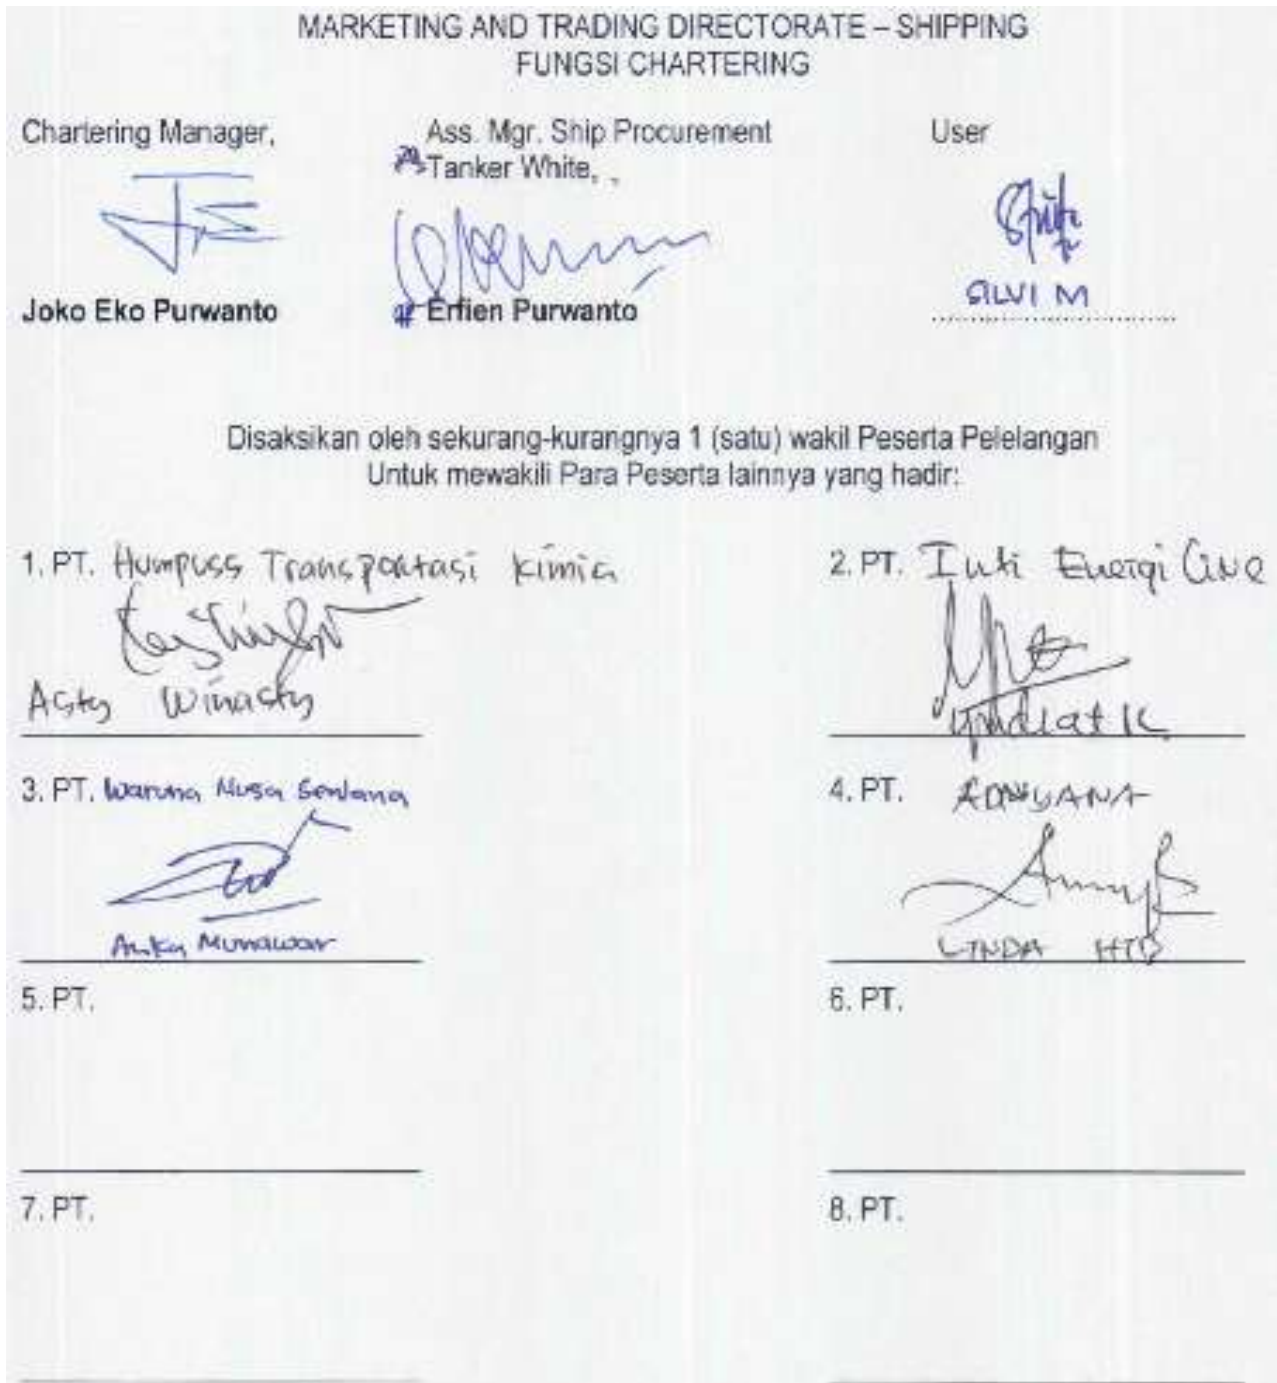 MARKETING AND TRADING DIRECTORATE – SHIPPING
FUNGSI CHARTERING
Chartering Manager,
Ass. Mgr. Ship Procurement
Tanker White,
User
Joko Eko Purwanto
Erfien Purwanto
SILVI M
Disaksikan oleh sekurang-kurangnya 1 (satu) wakil Peserta Pelelangan
Untuk mewakili Para Peserta lainnya yang hadir:
1. PT. Humpuss Transportasi Kimia
Asty Winasty
2. PT. Inti Energi Line
3. PT. Waruna Nusa Sentana
Munawar
4. PT.
LINDA HTD
5. PT.
6. PT.
7. PT.
8. PT.